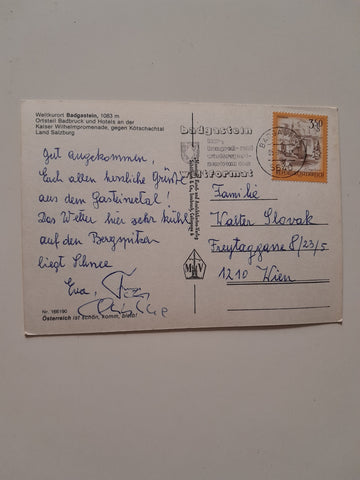 Weltkurort Badgastein, 1083 m
Ortsteil Badbruck und Hotels an der
Kaiser Wilhelmpromenade, gegen Kötschachtal
Land Salzburg
Gut angekommen,
Euch allen herzliche Grüße
aus dem Gasteinertal!
Das Wetter hier sehr kühl
auf den Bergspitzen
liegt Schnee
Eva,
Nr. 166190
Österreich ist schön, komm, bleib!
badgastein
weltformat
3.50
Familie
Walter Slovak
Freytaggasse 8/23/5
1210 Wien